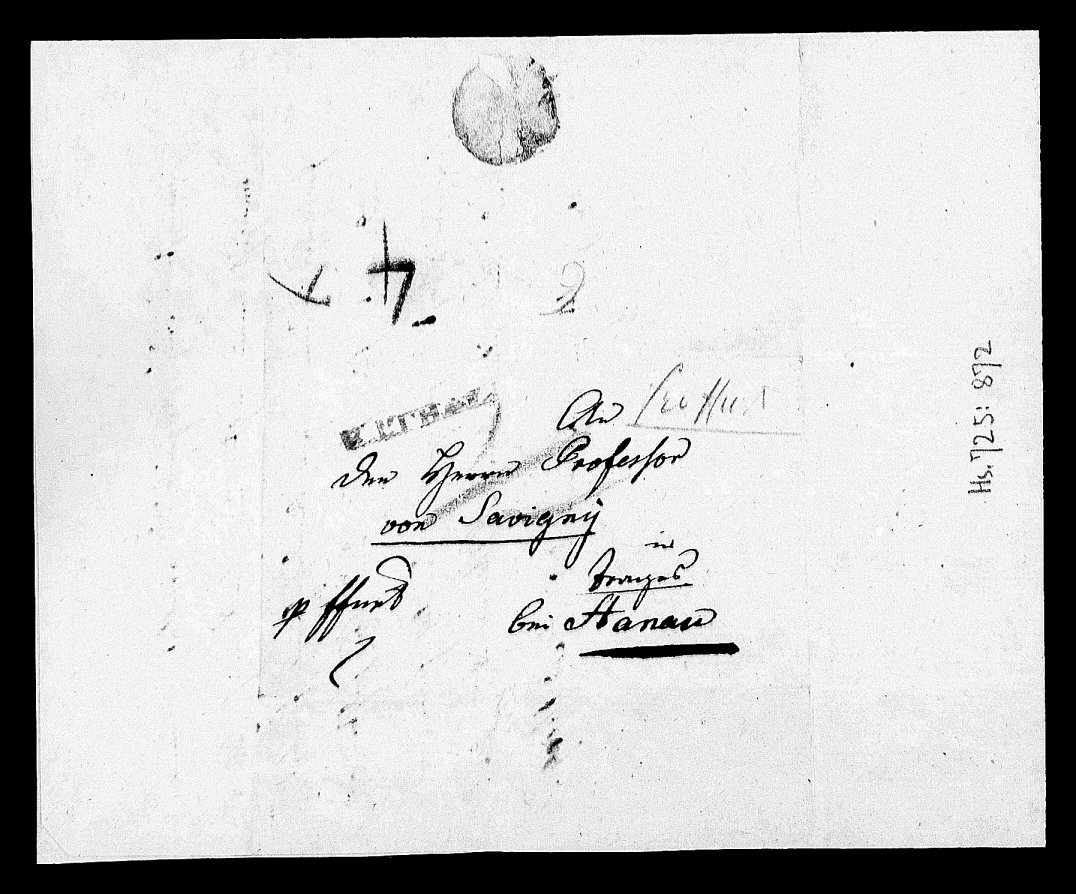 4
An
den Herrn Professor
von Savigny
in
Trages
bei Hanau
Hs. 725: 872